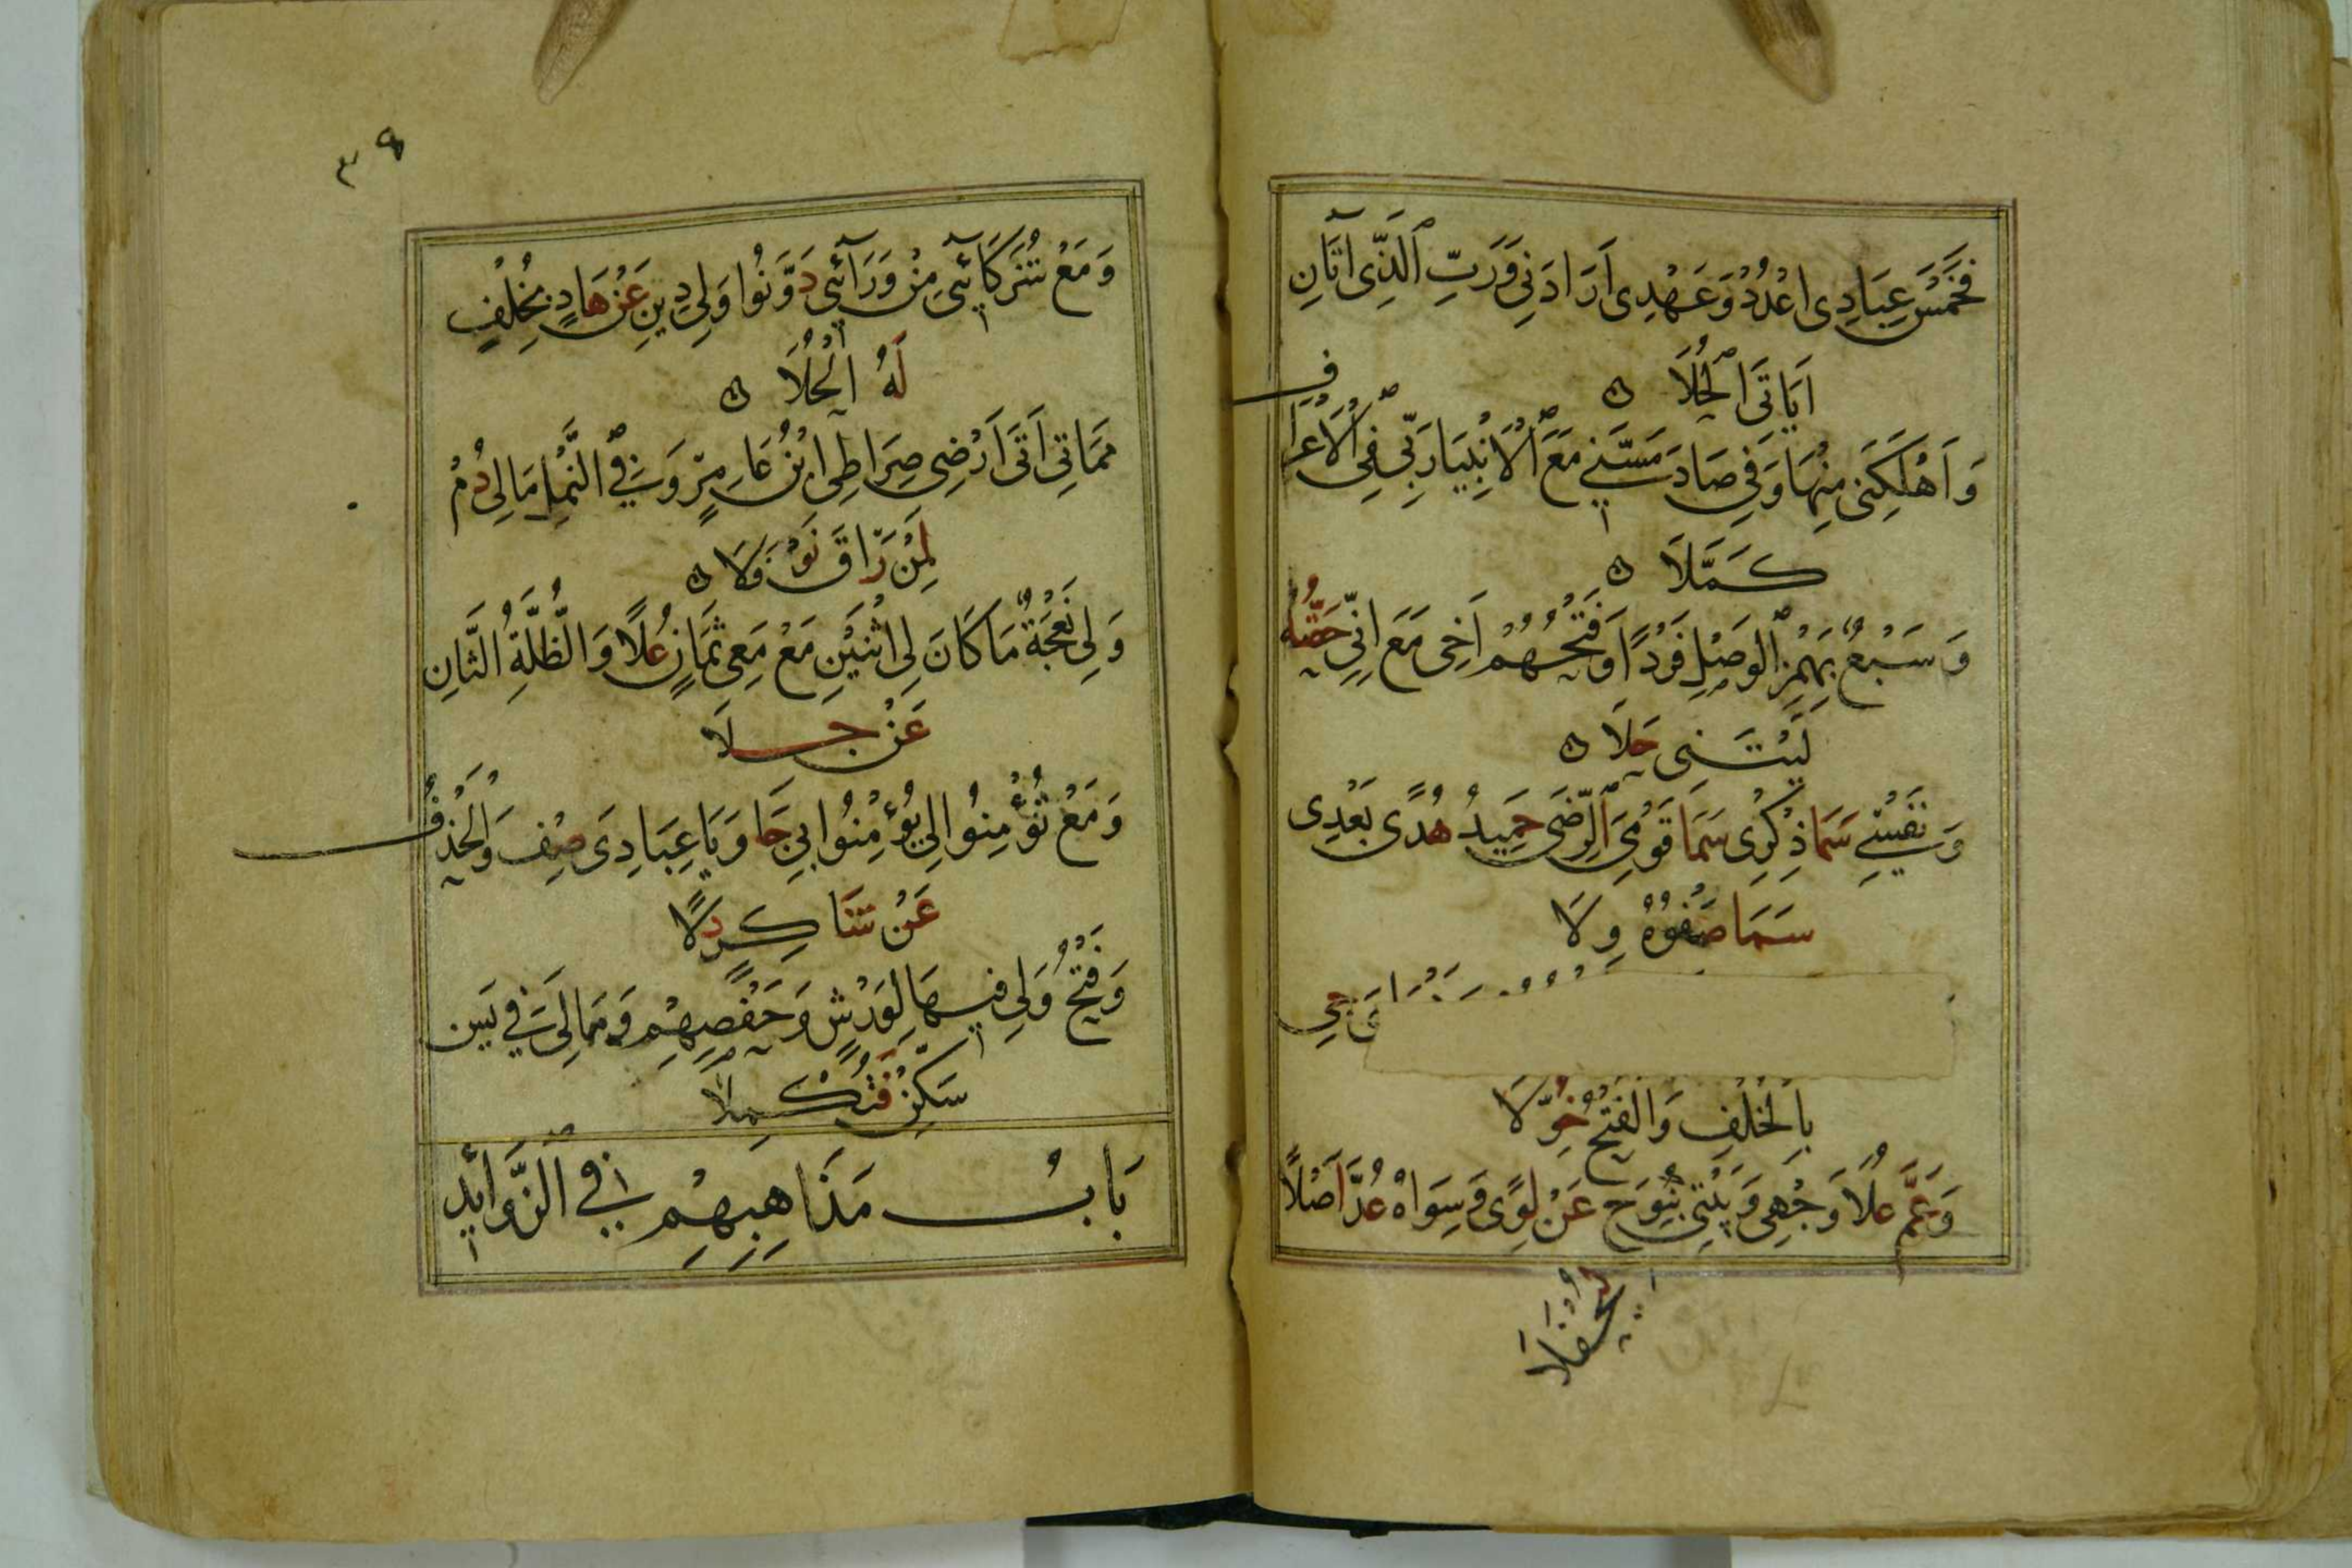 فَخَمْسَ عِبَادِى اعْدُدْ وَعَهْدِى اَرَادَنِى وَرَبِّ الَّذِى اٰتَانِ
اَيَاتَى الْحُلَا ۞
وَاَهْلَكَنِى مِنْهَا وَفِى صَادَ مَسَّنِى مَعَ الْاَنْبِيَا رَبِّى فِى الْاَعْرَافِ
كَمَّلَا ۞
وَسَبْعٌ بِهَمْزِ الْوَصْلِ فَرْدًا وَفَتْحُهُمْ اَخِى مَعَ اِنِّى حَقُّهُ
لَيْتَنِى حَلَا ۞
وَنَفْسِى سَمَا ذِكْرِى سَمَا قَوْمِىَ الرِّضَى حَمِيدُ هُدًى بَعْدِى
سَمَا صَفْوُهُ وِلَا
جِى
بِالْخُلْفِ وَالْفَتْحُ خُوِّلَا
وَعَمَّ عُلًا وَجْهِى وَبَيْتِى بِنُوحَ عَنْ لِوًى وَسِوَاهُ عُدَّ اَصْلًا
لِيُحْفَلَا
٣٩
وَمَعْ شُرَكَآئِى مِنْ وَرَآئِى دَوَّنُوا وَلِى دِينِ عَنْ هَادٍ بِخُلْفٍ
لَهُ الْحُلَا ۞
مَمَاتِى اَتَى اَرْضِى صِرَاطِى ابْنُ عَامِرٍ وَفِى النَّمْلِ مَا لِى دُمْ
لِمَنْ رَاقَ نَوْفَلَا ۞
وَلِى نَعْجَةٌ مَا كَانَ لِى اثْنَيْنِ مَعْ مَعِى ثَمَانٍ عُلًا وَالظُّلَّةُ الثَّانِ
عَنْ جِلَا
وَمَعْ تُؤْمِنُوا لِى يُؤْمِنُوا بِى جَا وَيَا عِبَادِىَ صِفْ وَالْحَذْفُ
عَنْ شَاكِرٍ دَلَا
وَفَتْحُ وَلِى فِيهَا لِوَرْشٍ وَحَفْصِهِمْ وَمَا لِىَ فِى يٰسٓ
سَكِّنْ فَتَكْمُلَا
بَابُ مَذَاهِبِهِمْ فِى الزَّوَائِدِ